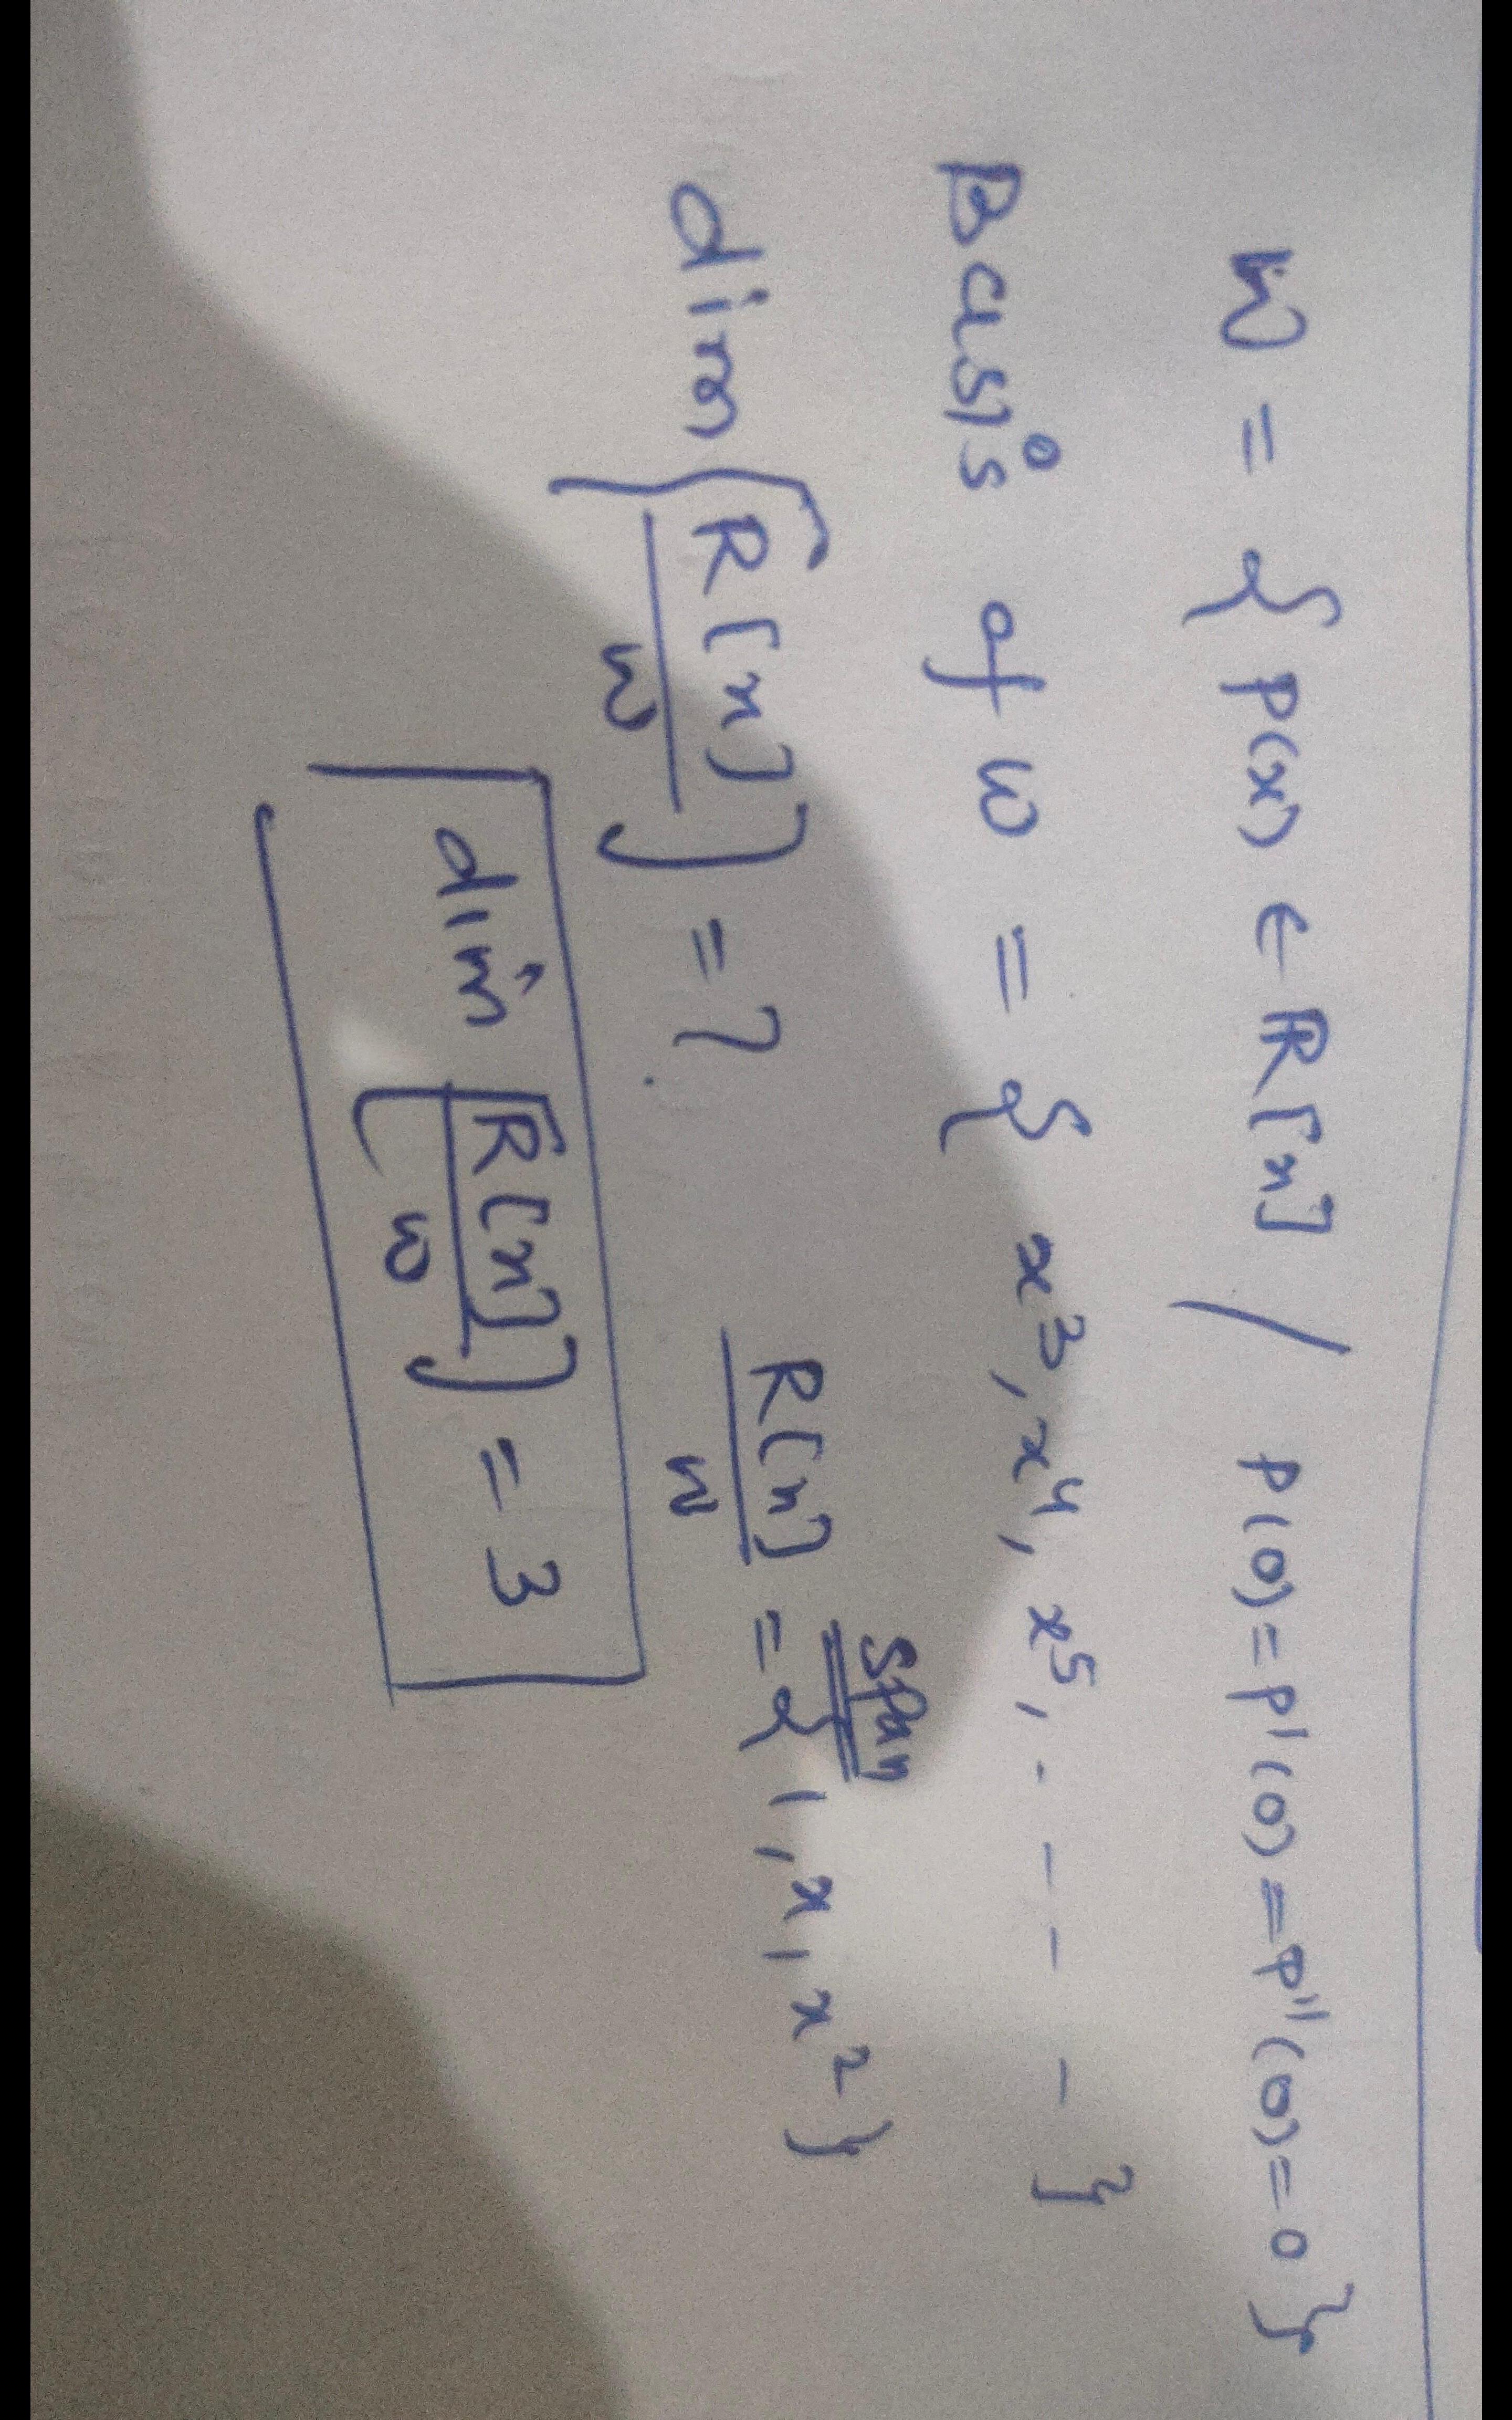 W = { P(x) ∈ R[x] / P(0) = P'(0) = P''(0) = 0 }
Basis of W = { x³, x⁴, x⁵, . - - - }
dim [ R[x] / W ] = ?
R[x] / W = span { 1, x, x² }
dim [ R[x] / W ] = 3